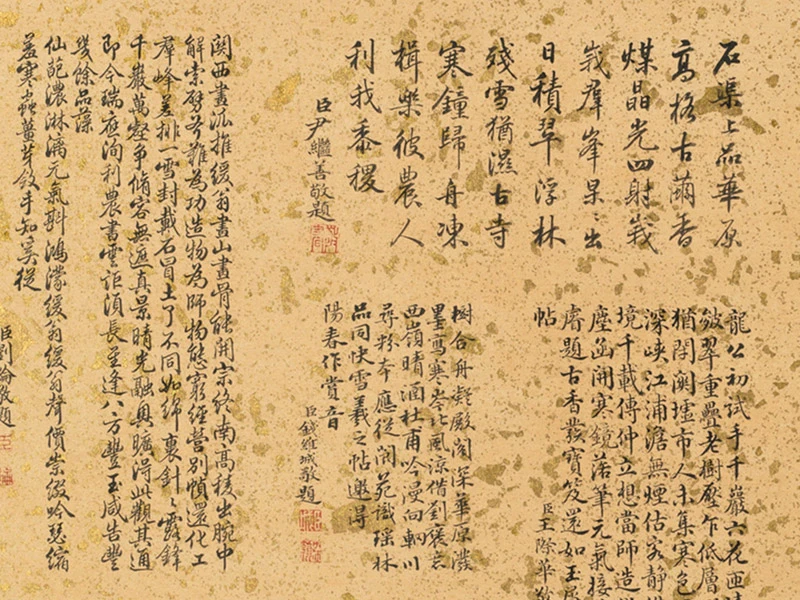 石渠上品華原
高格古繭香
煤晶光四射峩
峩羣峯杲〻出
日積翠浮林
殘雪猶濕古寺
寒鐘歸舟凍
楫樂彼農人
利我黍稷
臣尹繼善敬題
龍公初試手千巖六花
皴翠重疊老樹壓乍低層
猶閉闤墟市人未集寒色
深峽江浦澹無煙估客靜
境千載傳仲立想當師造
塵函開寒鏡落筆元氣接
睿題古香發寶笈還如玉
帖
臣王際華敬
樹合舟凝殿閣深華原潑
墨寫寒岑北風涼借劉褒
西嶺晴酒杜甫吟漫向輞川
尋粉本應從閬苑識瑤林
品同快雪羲之帖邀得
陽春作賞音
臣錢維城敬題
關西畫派推緩翁畫山畫骨能開宗終南高稜出腕中
解索劈斧難為功造物為師物態窮經營別幀還化工
羣峰羞排一雪封戴石冒土了不同如綿裏針〻露鋒
千巖萬壑爭脩容無遮真景晴光融奥曠得此觀其通
即今瑞應洵利農書雲詎須長至逢八方豐玉咸告豐
幾餘品藻
仙葩濃淋漓元氣斟鴻濛緩翁緩翁聲價崇優吟瑟縮
羞寒蟲薑芽斂手知奚從
臣劉綸敬題